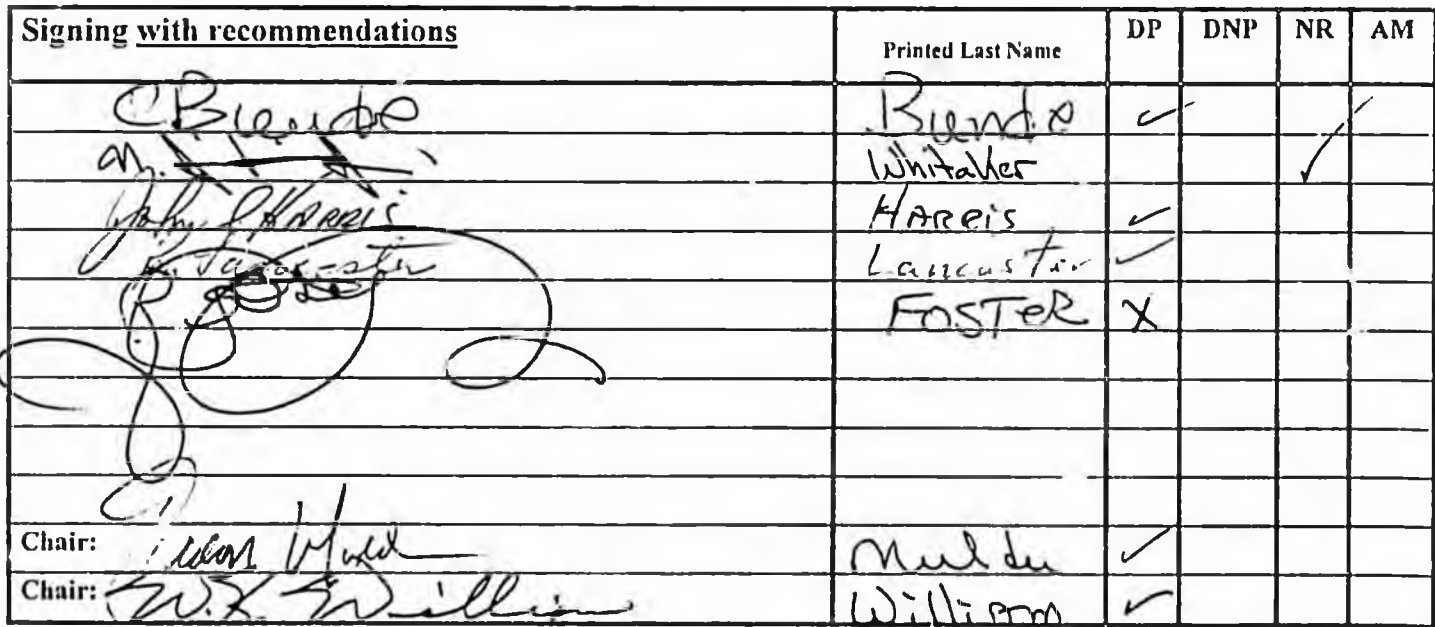 Signing with recommendations Printed Last Name DP DNP NR AM
CBunde Bunde ✓
M. Whitaker ✓
John J HARRIS HARRIS ✓
R. Lancaster Lancaster ✓
FOSTER X
Chair: Mulder ✓
Chair: W.K. William William ✓